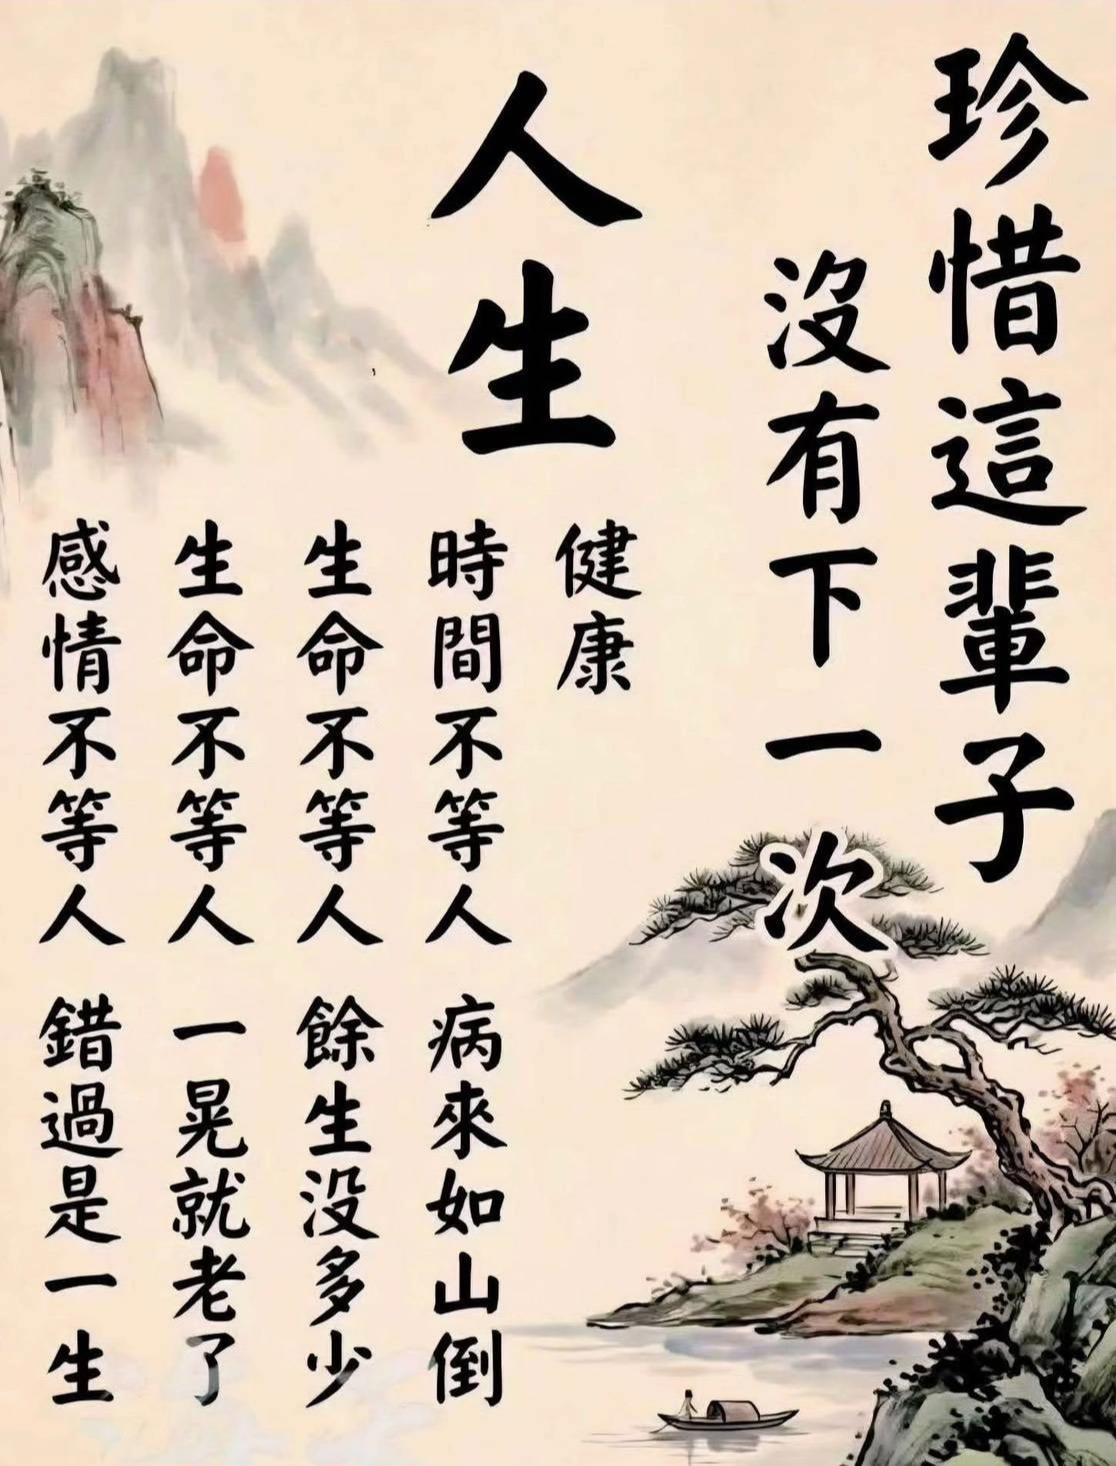 珍惜這輩子
沒有下一次
人生
健康
時間不等人 病來如山倒
生命不等人 餘生没多少
生命不等人 一晃就老了
感情不等人 錯過是一生